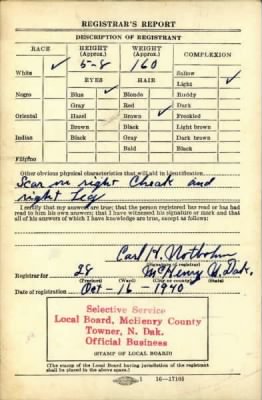 REGISTRAR'S REPORT
DESCRIPTION OF REGISTRANT
RACE HEIGHT (Approx.) WEIGHT (Approx.) COMPLEXION
5-8 160
White ✓ Sallow
EYES HAIR Light ✓
Negro Blue ✓ Blonde Ruddy
Gray Red Dark
Oriental Hazel Brown ✓ Freckled
Brown Black Light brown
Indian Black Gray Dark brown
Bald Black
Filipino
Other obvious physical characteristics that will aid in identification
Scar on right Cheak and
right Leg
I certify that my answers are true; that the person registered has read or has had
read to him his own answers; that I have witnessed his signature or mark and that
all of his answers of which I have knowledge are true, except as follows:
Carl H. Notbohm
(Signature of registrar)
Registrar for 28 McHenry N. Dak.
(Precinct) (Ward) (City or county) (State)
Date of registration Oct-16-1940
Selective Service
Local Board, McHenry County
Towner, N. Dak.
Official Business
(STAMP OF LOCAL BOARD)
(The stamp of the Local Board having jurisdiction of the registrant
shall be placed in the above space.)
16-17105